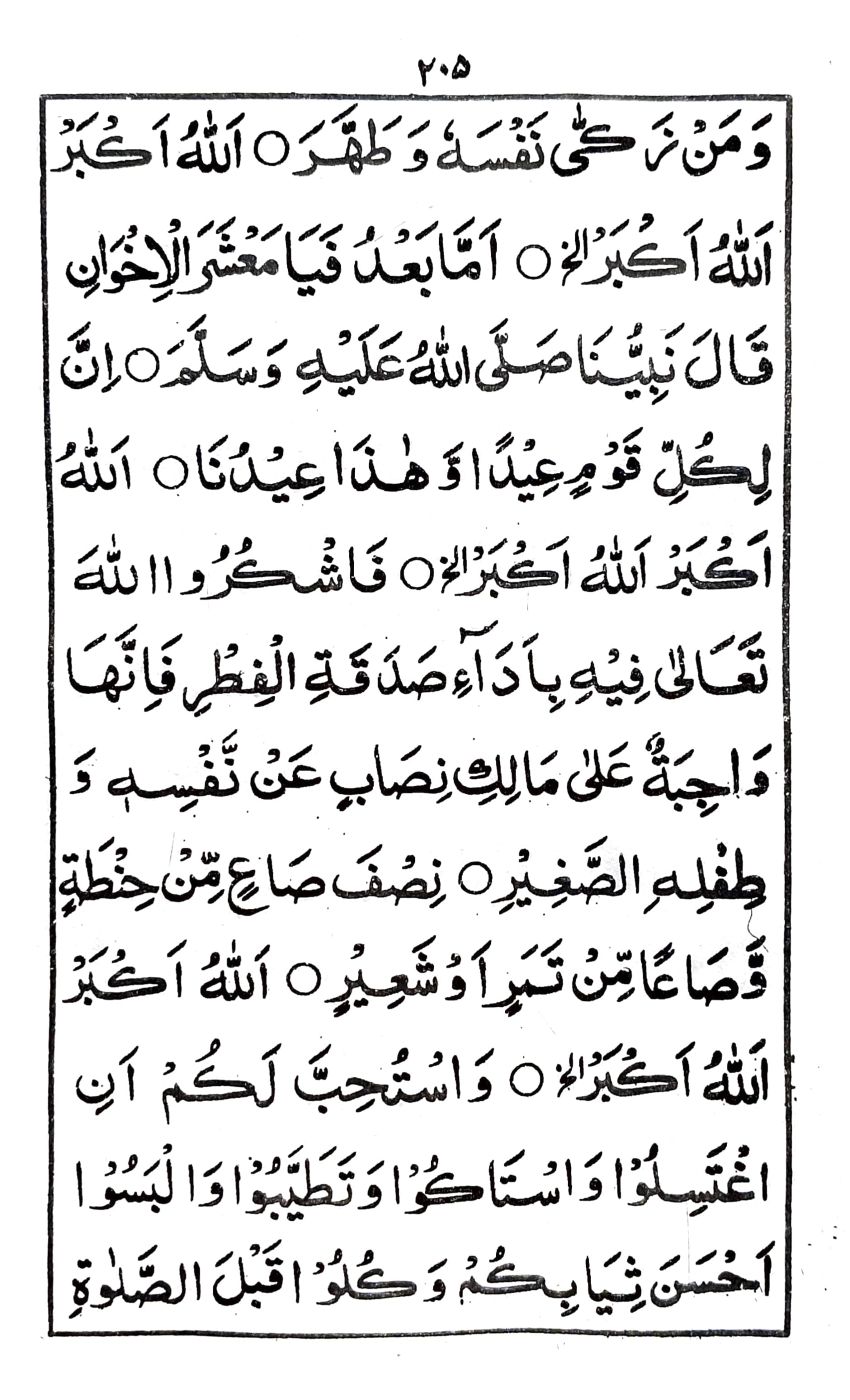 ۲۰۵
وَمَنْ زَكّٰى نَفْسَهٗ وَطَهَّرَ ○ اَللّٰهُ اَكْبَرُ
اَللّٰهُ اَكْبَرُ الخ ○ اَمَّا بَعْدُ فَيَا مَعْشَرَ الْاِخْوَانِ
قَالَ نَبِيُّنَا صَلَّى اللّٰهُ عَلَيْهِ وَسَلَّمَ ○ اِنَّ
لِكُلِّ قَوْمٍ عِيْدًا وَّ هٰذَا عِيْدُنَا ○ اَللّٰهُ
اَكْبَرُ اَللّٰهُ اَكْبَرُ الخ ○ فَاشْكُرُوا اللّٰهَ
تَعَالٰى فِيْهِ بِاَدَآءِ صَدَقَةِ الْفِطْرِ فَاِنَّهَا
وَاجِبَةٌ عَلٰى مَالِكِ نِصَابٍ عَنْ نَّفْسِهٖ وَ
طِفْلِهِ الصَّغِيْرِ ○ نِصْفَ صَاعٍ مِّنْ حِنْطَةٍ
وَّصَاعًا مِّنْ تَمَرٍ اَوْ شَعِيْرٍ ○ اَللّٰهُ اَكْبَرُ
اَللّٰهُ اَكْبَرُ الخ ○ وَاسْتُحِبَّ لَكُمْ اَنِ
اغْتَسِلُوْا وَاسْتَاكُوْا وَتَطَيَّبُوْا وَالْبَسُوْا
اَحْسَنَ ثِيَابِكُمْ وَكُلُوْا قَبْلَ الصَّلٰوةِ